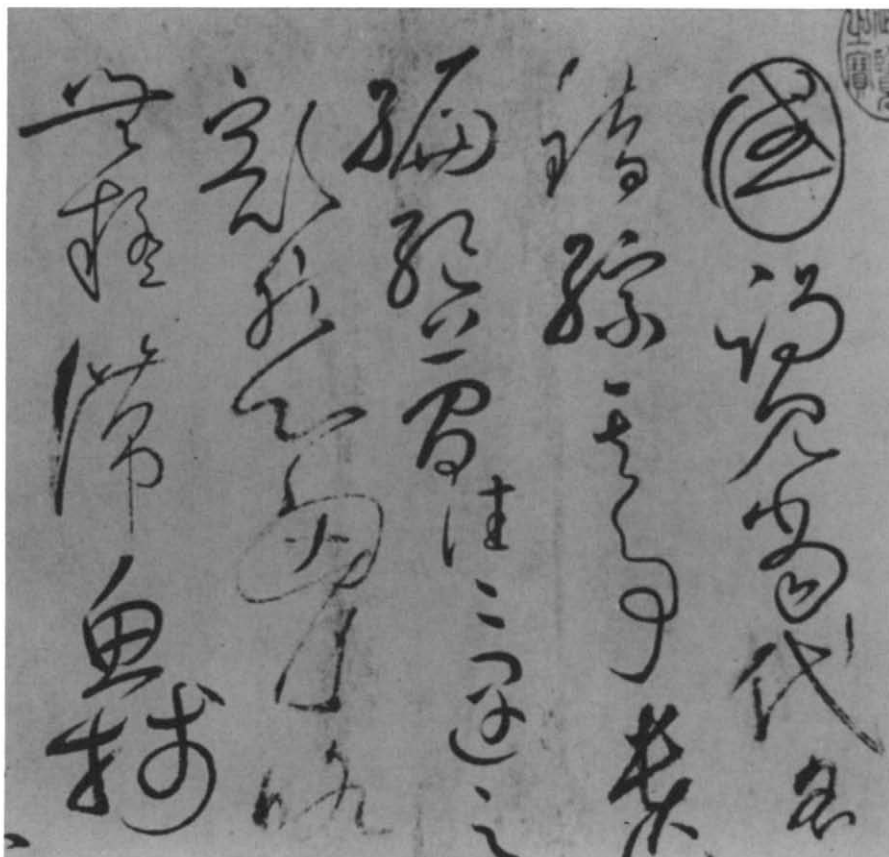 國謁見當代名
錯綜其事遺
編絕簡往〻遇之
豁然心胷略
無疑滯魚牋